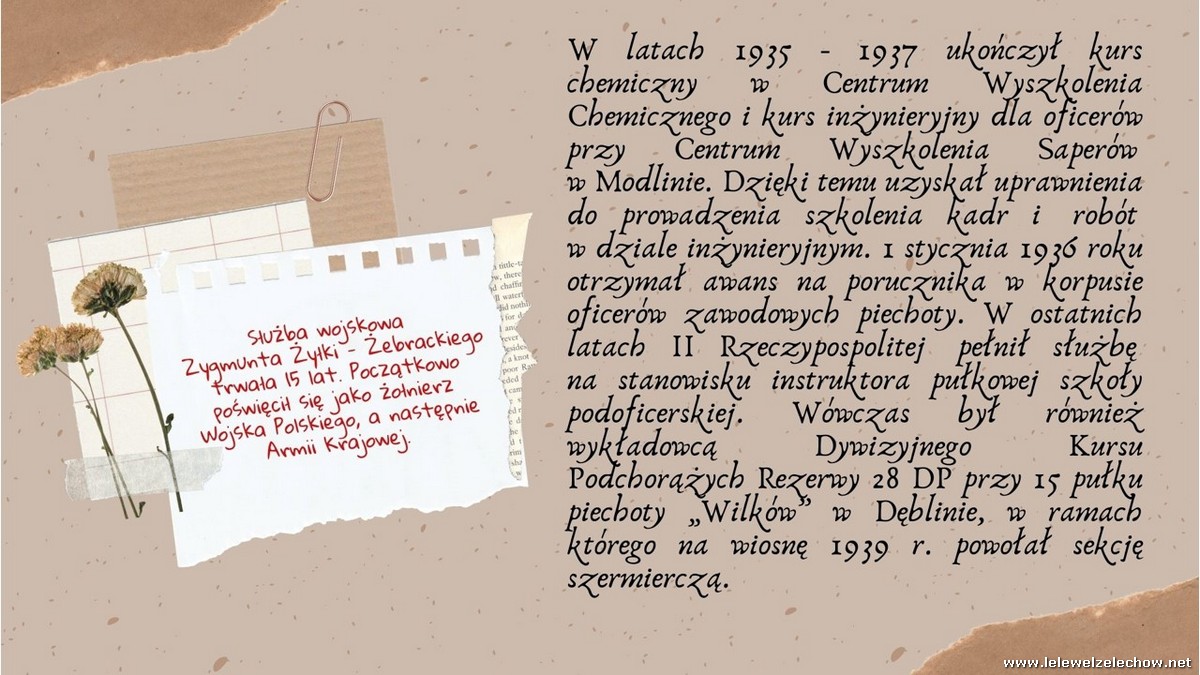 Służba wojskowa
Zygmunta Żyłki - Żebrackiego
trwała 15 lat. Początkowo
poświęcił się jako żołnierz
Wojska Polskiego, a następnie
Armii Krajowej.
W latach 1935 - 1937 ukończył kurs
chemiczny w Centrum Wyszkolenia
Chemicznego i kurs inżynieryjny dla oficerów
przy Centrum Wyszkolenia Saperów
w Modlinie. Dzięki temu uzyskał uprawnienia
do prowadzenia szkolenia kadr i robót
w dziale inżynieryjnym. 1 stycznia 1936 roku
otrzymał awans na porucznika w korpusie
oficerów zawodowych piechoty. W ostatnich
latach II Rzeczypospolitej pełnił służbę
na stanowisku instruktora pułkowej szkoły
podoficerskiej. Wówczas był również
wykładowcą Dywizyjnego Kursu
Podchorążych Rezerwy 28 DP przy 15 pułku
piechoty „Wilków” w Dęblinie, w ramach
którego na wiosnę 1939 r. powołał sekcję
szermierczą.
www.lelewelzelechow.net